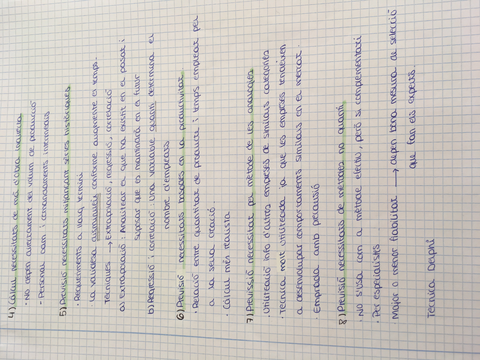 4) Càlcul necessitats de mà d'obra indirecta
· No depèn directament del volum de producció
· Personal adm. i comandaments intermedis
5) Previsió necessitats mitjançant sèries històriques
· Requeriments a llarg termini
La variable augmentarà conforme augmenta el temps.
Tècniques → Extrapolació, regressió, correlació
a) Extrapolació: Analitzar el que ha existit en el passat i
suposar que es mantindrà en el futur
b) Regressió i correlació: una variable quanti determina el
nombre d'empleats
6) Previsió necessitats basades en la productivitat
· Relació entre quantitat de producte i temps emprat per
a la seua creació
· Càlcul més realista
7) Previsió necessitat pel mètode de les analogies
· Utilització info d'altres empreses de similars categories
· Tècnica molt utilitzada ja que les empreses tendeixen
a desenvolupar comportaments similars en el mercat
· Emprada amb precaució
8) Previsió necessitats de mètodes no quanti.
· No s'usa com a mètode efectiu, però sí complementari
· Per especialistes
Major o menor fiabilitat → depen bona mesura de selecció
que fan els experts.
Tècnica Delphi